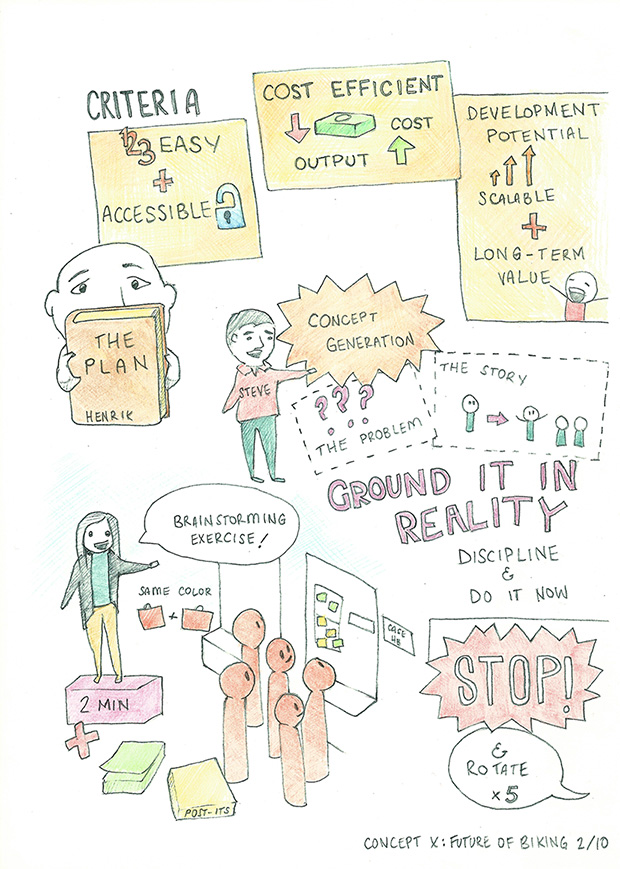 CRITERIA
123 EASY
+
ACCESSIBLE
COST EFFICIENT
COST
OUTPUT
DEVELOPMENT
POTENTIAL
SCALABLE
+
LONG-TERM
VALUE
THE
PLAN
HENRIK
STEVE
CONCEPT
GENERATION
? ? ?
THE PROBLEM
THE STORY
GROUND IT IN
REALITY
DISCIPLINE
&
DO IT NOW
BRAINSTORMING
EXERCISE!
SAME COLOR
+
2 MIN
+
POST-ITS
CASE
HB
STOP!
&
ROTATE
x5
CONCEPT X: FUTURE OF BIKING 2/10